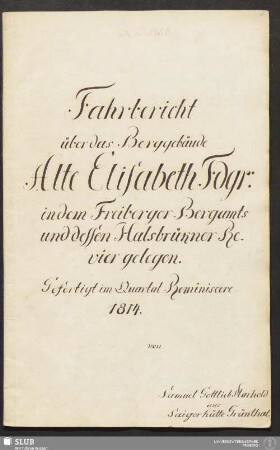 Fahrbericht
über das Berggebäude
Alte Elisabeth Fdgr:
in dem Freiberger Bergamts
und dessen Halsbrükner Re-
vier gelegen.
Gefertigt im Quartal Reminiscere
1814.
von
Samuel Gottlieb
aus
Saigerhütte Grünthal.
SLUB